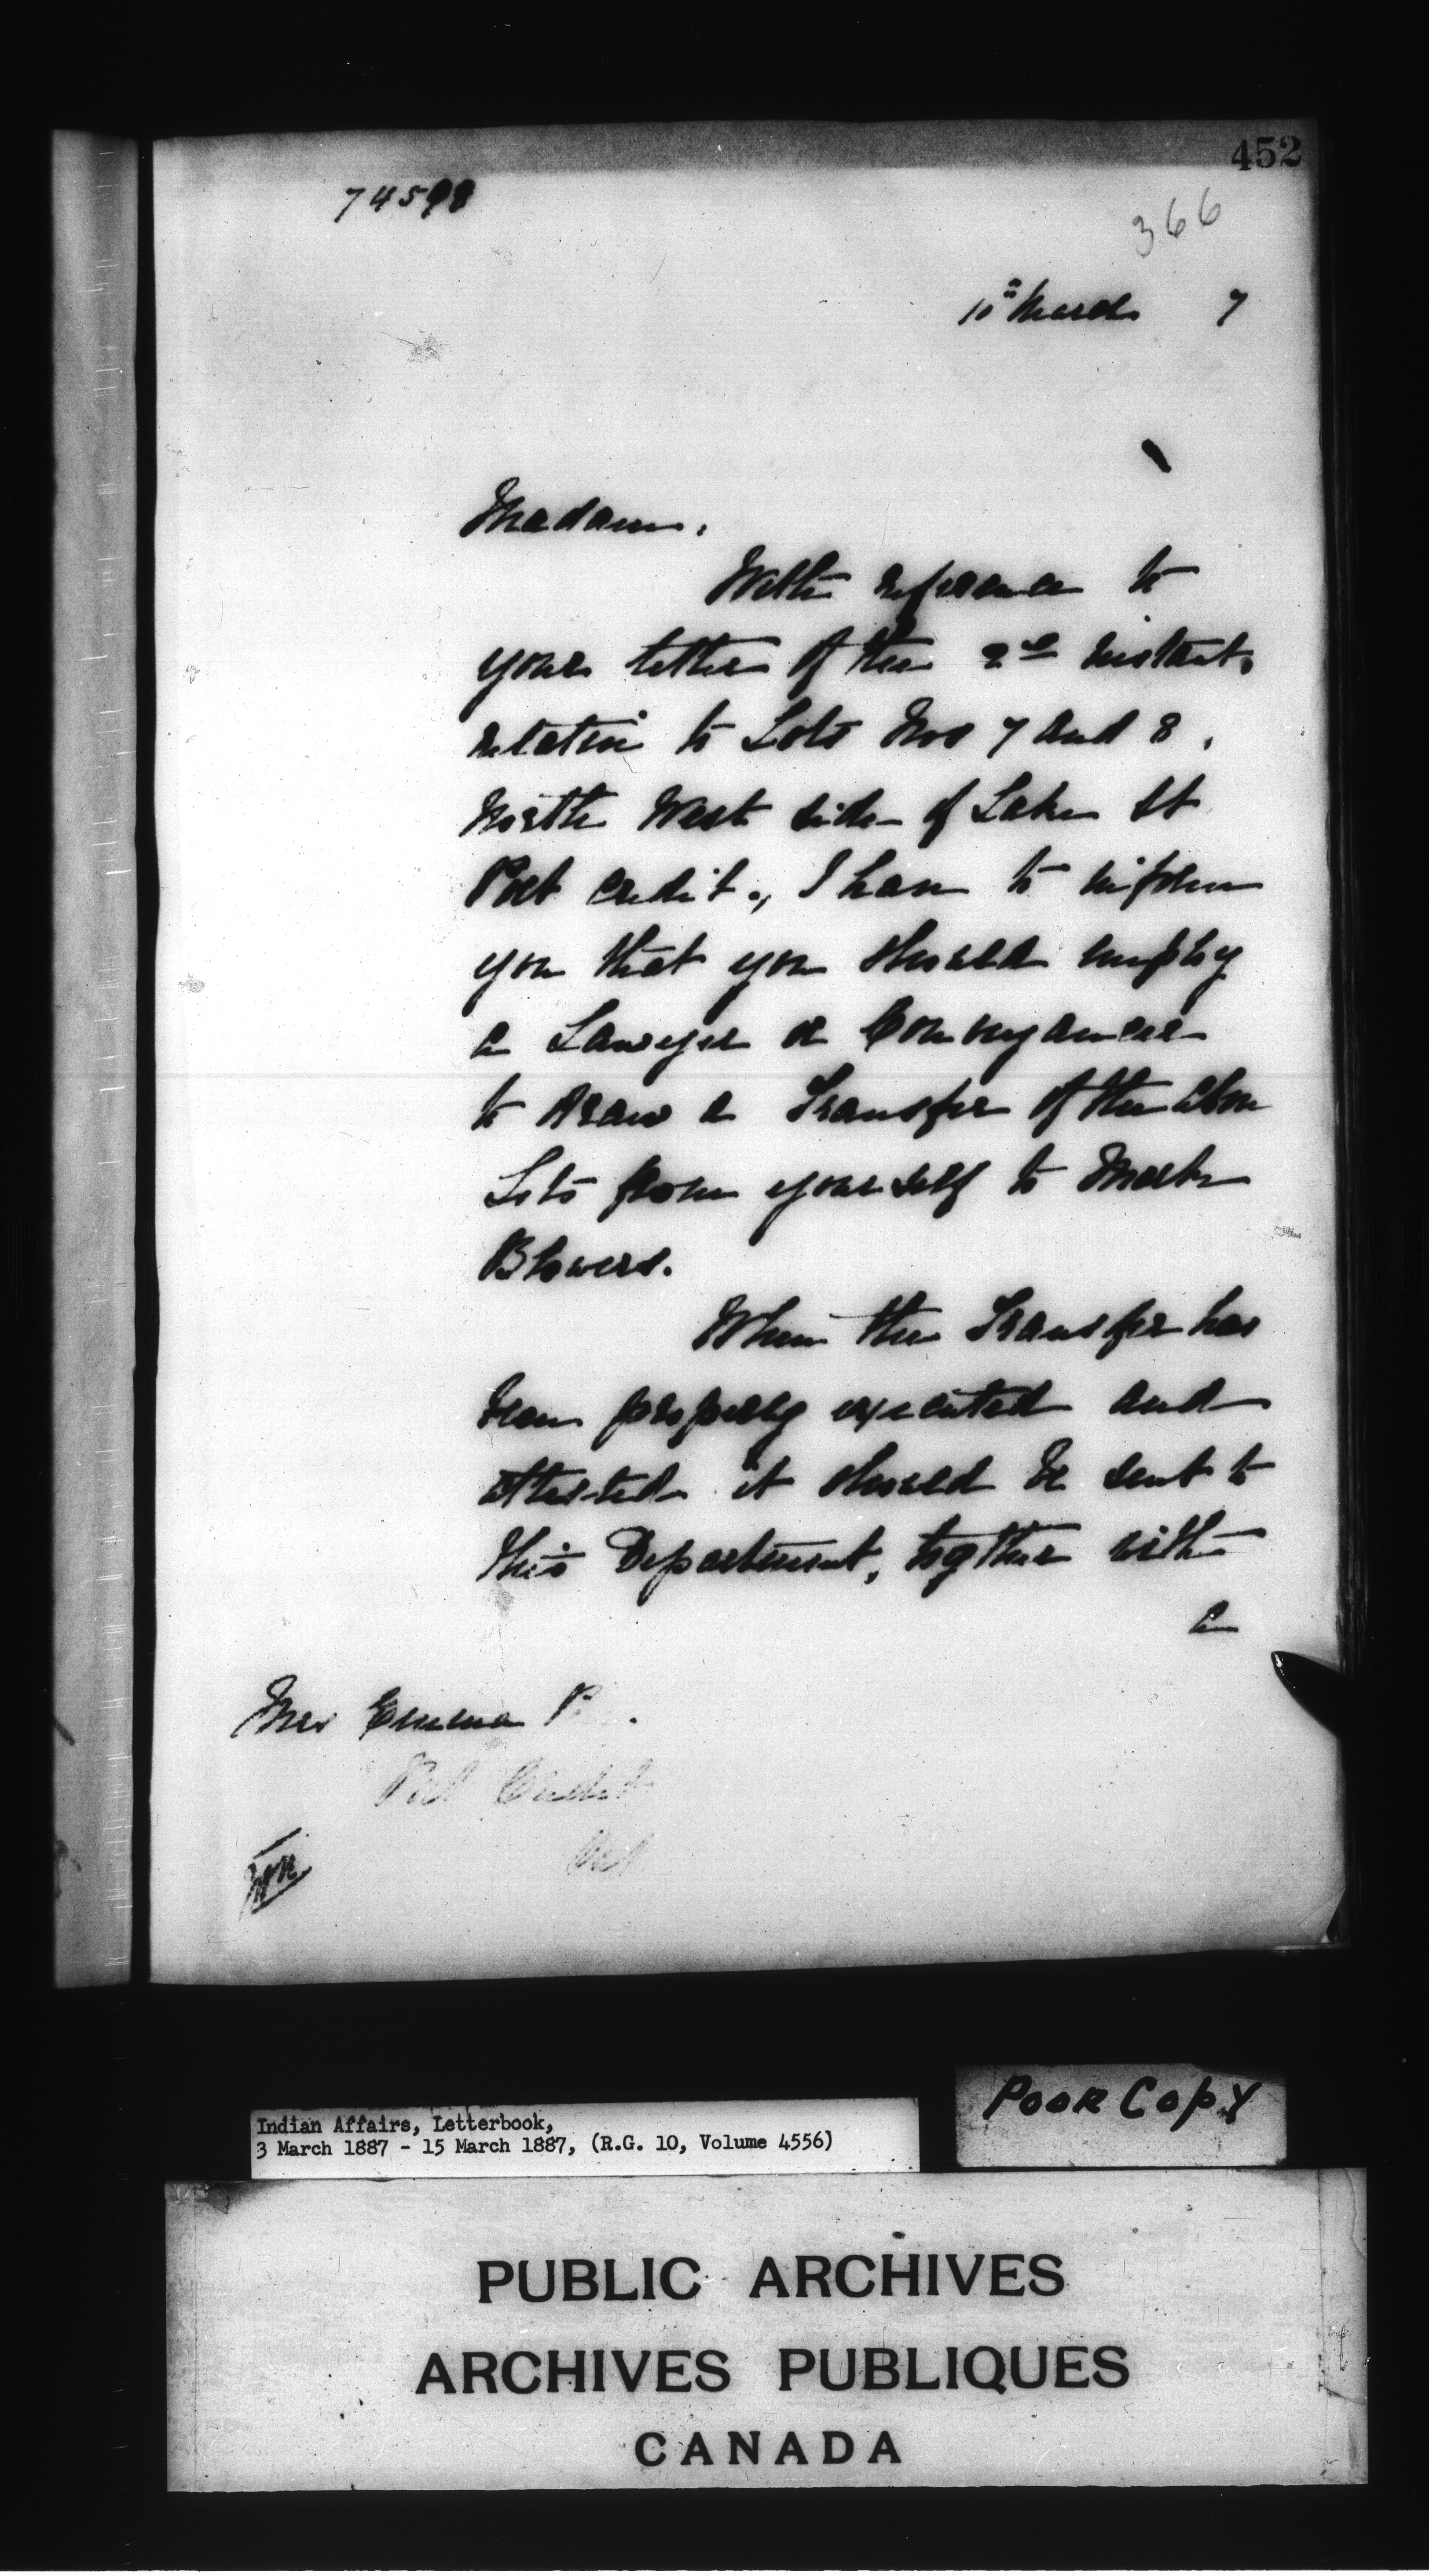 452
74598
366
10th March 7
Madam,
With reference to
your letter of the 2nd instant,
relative to Lots Nos 7 and 8,
North West side of Lake St
Port Credit, I have to inform
you that you should employ
a Lawyer or Conveyancer
to draw a Transfer of the above
Lots from yourself to Mark
Blowers.
When the Transfer has
been properly executed and
attested it should be sent to
this Department, together with
a
Mrs Emma
Port Credit
Ont
Indian Affairs, Letterbook,
3 March 1887 - 15 March 1887, (R.G. 10, Volume 4556)
Poor Copy
PUBLIC ARCHIVES
ARCHIVES PUBLIQUES
CANADA